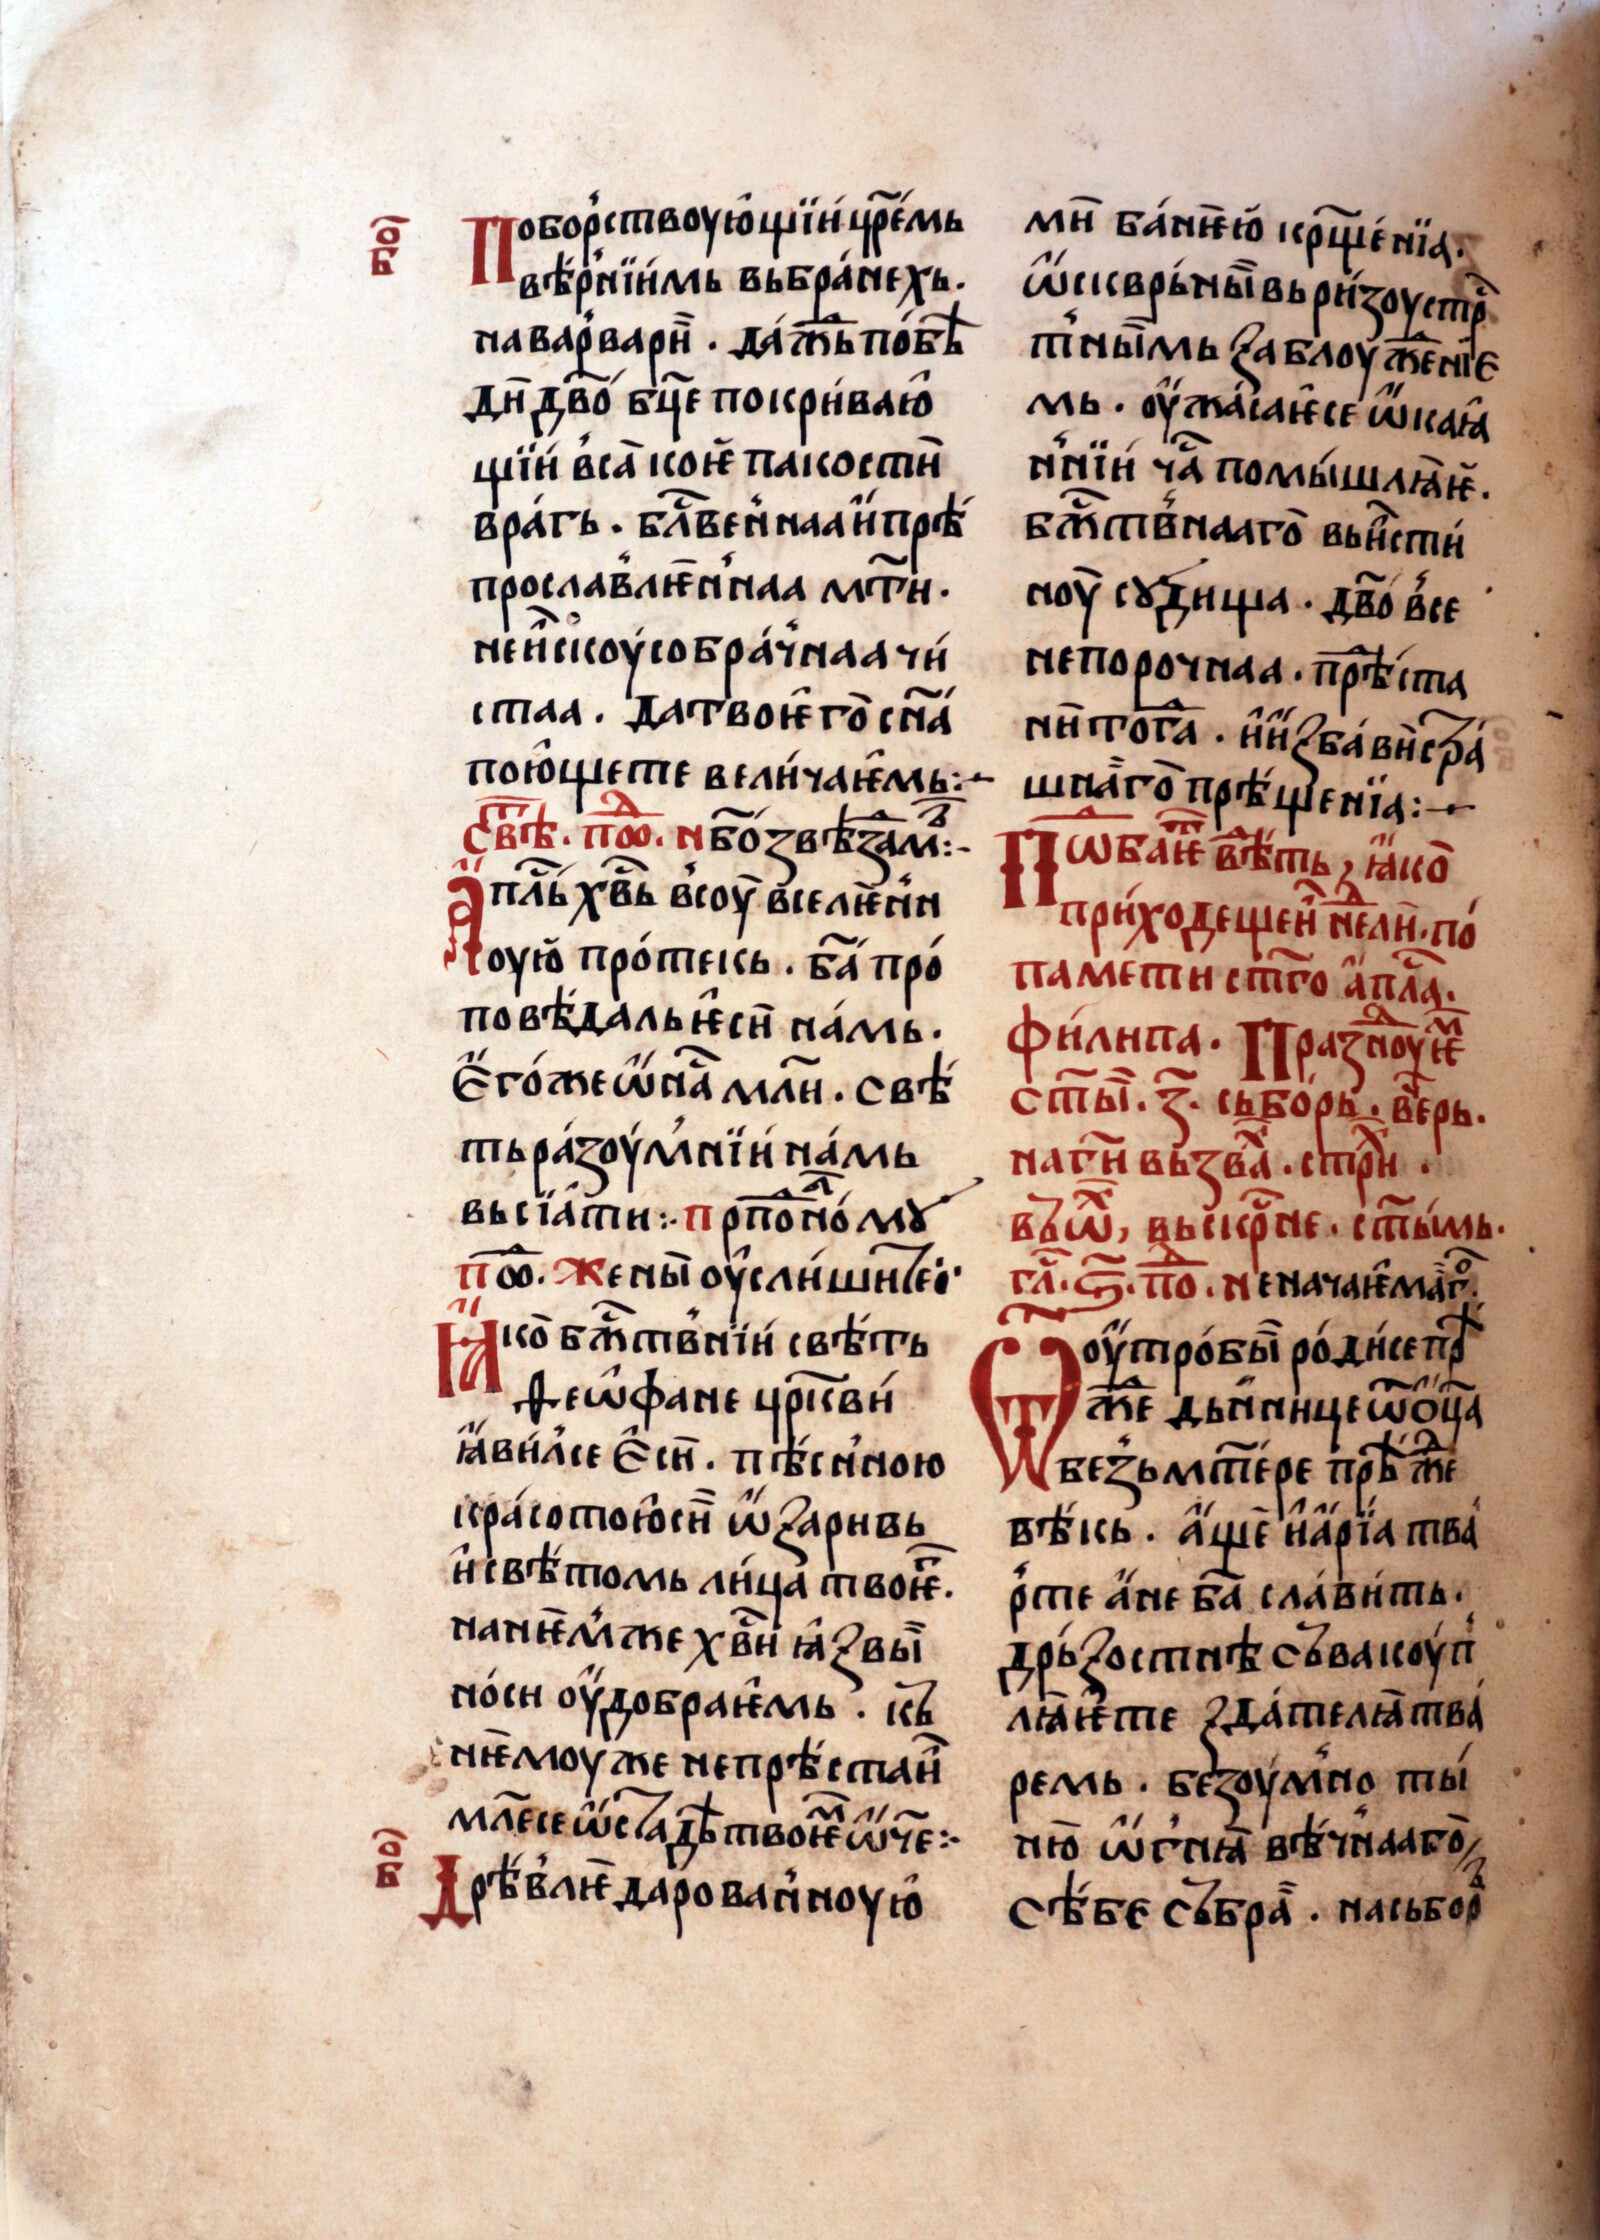 бо҃
Побо́рствоую̑щїи цр҃е́мь
вѣ́рнїи́мь вьбра́нехь.
на ва́рварн҃. да́ждь по́бѣ
дн҃ дв҃о́ бц҃е покри́ваю̑
щїи́ вса̀ кои҃ пакостн҃
вра́гь. бл҃ве́ннаа и̑ прѣ
просла́влѥ́ннаа мт҃и.
неи́скоусобра́чнаа чи́
стаа. да твоѥ҃го с҃на́
пою̑ще те вели́чаѥ̑мь:-
свѣ҃. пⷣо. нб҃о́ звѣзам:-
А҆пл҃ь хв҃ь всоу́ вселѥ́нн
оую̀ про́текь. б҃а́ про́
повѣ́даль ѥ̑си҃ на́мь.
Є҆го́же ѿ на҃ млн҃. свѣ́
ть ра́зоу́мнїи́ на́мь
вьсїа́ти:· прпⷣо́но́мꙋ
пⷣо. Жены҃ оу҆сли́ши́те:·
Ꙗ҆ко҃ бж҃твнїи́ свѣ́ть
Ѳеѡ҆фане цр҃кви́
ꙗ҆ви́лсе Є҆сн҃. пѣ́снною
кра́сотою̑ сн҃ ѡ҆зарнвь
и҆ свѣ́томь ли́ца твоѥ҃.
на нѥ́мже хв҃и́ ꙗ҆звы҃
но́сн оу҆добраѥ̑мь. кь
нѥ҃моуже непрѣ́стаи҃
мл҃есе ѡ҆ стадѣ твоѥ҃ ѿч҃е:-
бо҃
Дрѣ́влѥ҃ даро ва́нноую̑
мн҃ ба́нѥю̀ крщ҃е́нїа.
ѡ҆скврь́ны҃ вь ри́зоу стр
тны҃мь заблоу́жⷣенїе
мь. оу҆жа́саѥ̑се ѡ҆каꙗ̑
ннїи́ ча҃ помы́шлꙗѥ̀.
бж҃твнааго҃ вьи́сти́
ноу҃ сꙋдища. дв҃о́ все
непорочнаа. прѣ́ста
ни҃ тогⷣа. и҆ и҆зба́ви҃ стра́
шна́го҃ прѣ́щенїа:-
Пⷣоба́ѥ҃ вѣ́ⷣть, ꙗ҆ко҃
при́ходещеи҃ не́ⷣли҃. по́
памети ст҃го а҆пⷭ҇ла.
фи́липа. Пра́знⷣоуѥⷨ
ст҃ы҃. з҃. сьбо́рь. ве҃рь.
на гн҃ вьзва́ⷯ. стрⷯн.
вьѡⷯ, вьскрⷭ҇не. ст҃ы́мь.
гл҃. ѕ҃. пⷣо. неначаѥ̑маго̀.
Ѿ оу҆тро́бы҃ ро́дисе прѣ
жⷣе дьнни́це ѿ ѡ҆ц҃а
безь мт҃е́ре прѣ́жⷣе
вѣ́кь. а҆ще҃ и҆ а҆рїа тва
рте а҆ не б҃а́ сла́вить.
дрь́зостнѣ съвакоу́п
лꙗ҃ѥ̑те здателꙗ҃ тва́
ремь. безоу́мно ты́
ню҃ ѡ҆гнꙗ҃ вѣ́чнааго҃
сѣ́бе събра҃. на сьбор